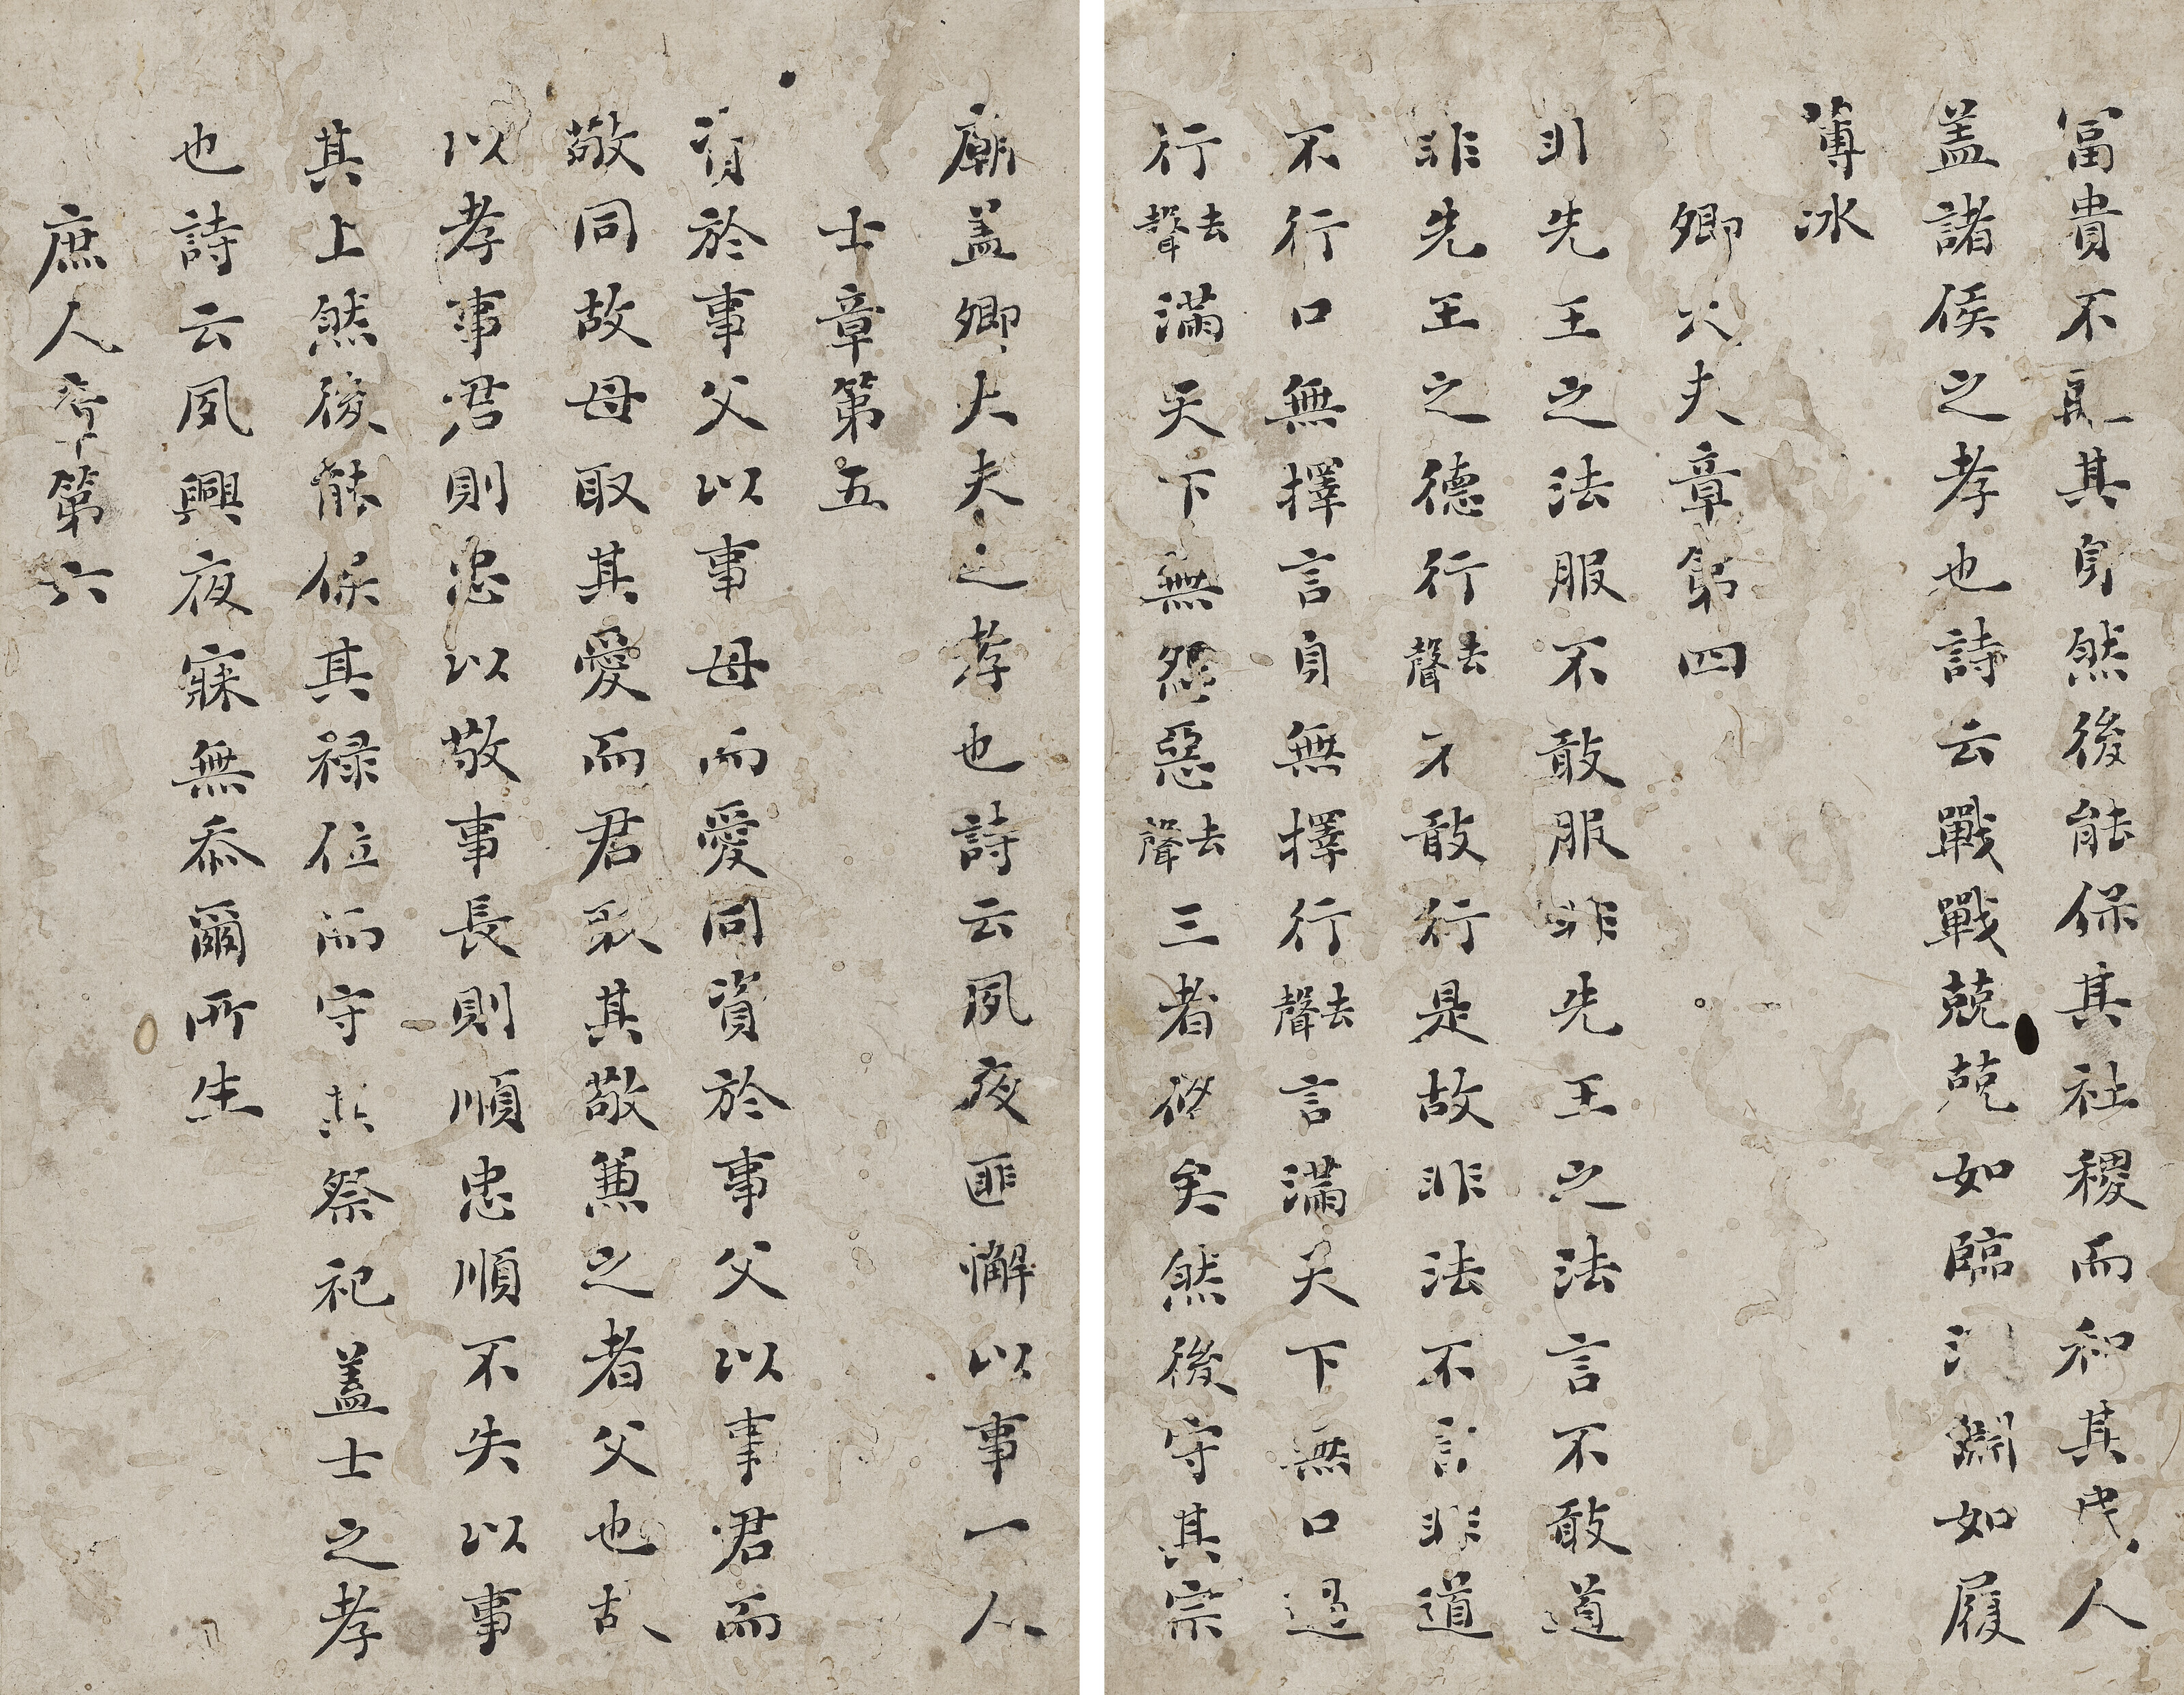 富貴不離其身然後能保其社稷而和其民人
盖諸侯之孝也詩云戰戰兢兢如臨深淵如履
薄冰
卿大夫章第四
非先王之法服不敢服非先王之法言不敢道
非先王之德行去聲不敢行是故非法不言非道
不行口無擇言身無擇行去聲言滿天下無口過
行去聲滿天下無怨惡去聲三者俻矣然後守其宗
廟盖卿大夫之孝也詩云夙夜匪懈以事一人
士章第五
資於事父以事母而愛同資於事父以事君而
敬同故母取其愛而君取其敬兼之者父也故
以孝事君則忠以敬事長則順忠順不失以事
其上然後能保其禄位而守其祭祀盖士之孝
也詩云夙興夜寐無忝爾所生
庶人章第六